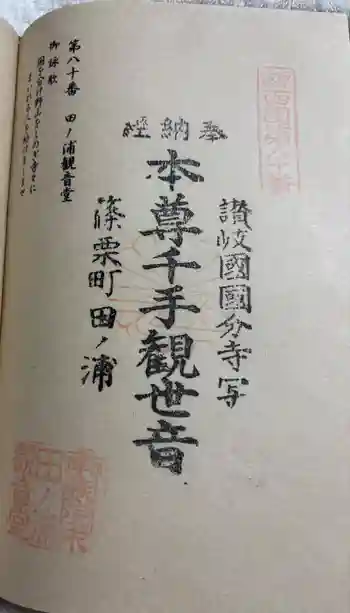 奉納経
讃岐國國分寺写
本尊千手観世音
篠栗町田ノ浦
第八十番　田ノ浦観音堂
御詠歌
國を分け野山をしのぎ寺々に
まいれる人を助けましませ